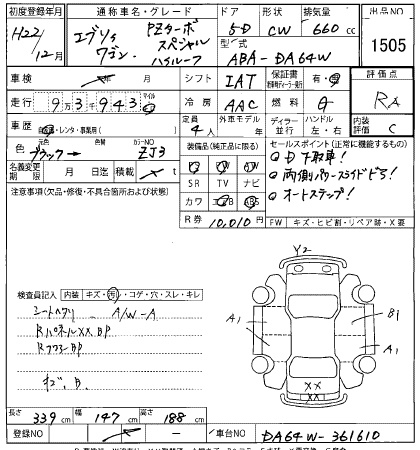 初度登録年月 通称車名・グレード ドア 形状 排気量 出品NO
H22/12月 エブリィワゴン PZターボスペシャルハイルーフ 5D CW 660cc 1505
型式 ABA-DA64W
車検 年 月 シフト IAT 保証書 有・無 評価点
走行 93943 マイル 冷房 AAC 燃料 ガ RA
車歴 自家用・レンタ・事業用( ) 定員 4人 外車モデル 年 ディーラー 並行 ハンドル 左・右 内装評価 C
元色 ブラック→ 色替 カラーNO ZJ3
装備品(純正品に限る) セールスポイント(正常に機能するもの)
名義変更期限 月 日迄 積載 t
SR TV ナビ
カワ エアB ABS
R券 10,010円
D下取車!
両側パワースライドドア!
オートステップ!
注意事項(欠品・修復・不具合箇所および状態)
FW キズ・ヒビ割・リペア跡・X要
検査員記入 内装 キズ・汚・コゲ・穴・スレ・キレ
シートヘタリ A/W-A
RパネルXX.BP
RフロアBP
キズ、B.
Y2
A1
B1
A1
XX
長さ 339cm 幅 147cm 高さ 188cm
登録NO - 車台NO DA64W-361610